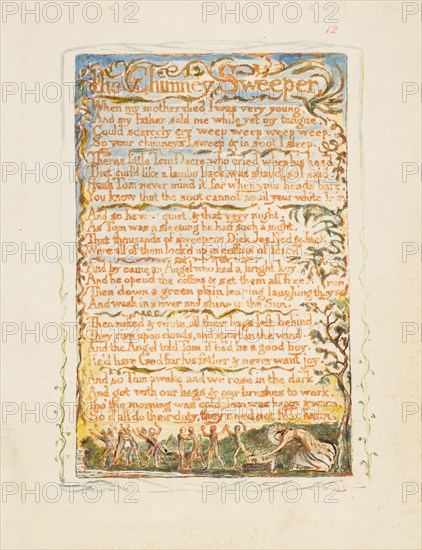 12
The Chimney Sweeper
When my mother died I was very young
And my father sold me while yet my tongue
Could scarcely cry weep weep weep weep
So your chimneys I sweep & in soot I sleep
Theres little Tom Dacre who cried when his head
That curl'd like a lambs back was shav'd, so I said
Hush Tom never mind it, for when your heads bare
You know that the soot cannot spoil your white
And so he was quiet, & that very night
As Tom was a sleeping he had such a sight
That thousands of sweepers Dick, Joe, Ned &
Were all of them lock'd up in coffins of
And by came an Angel who had a bright key
And he open'd the coffins & set them all free
Then down a green plain leaping laughing they
And wash in a river and shine in the Sun
Then naked & white, all their bags left behind
They rise upon clouds, and sport in the wind
And the Angel told Tom, if he'd be a good boy
He'd have God for his father & never want joy
And so Tom awoke and we rose in the dark
And got with our bags & our brushes to work
Tho' the morning was cold, Tom was happy & warm
So if all do their duty, they need not fear harm
PHOTO12
PHOTO12
PHOTO12
PHOTO12
PHOTO12
PHOTO12